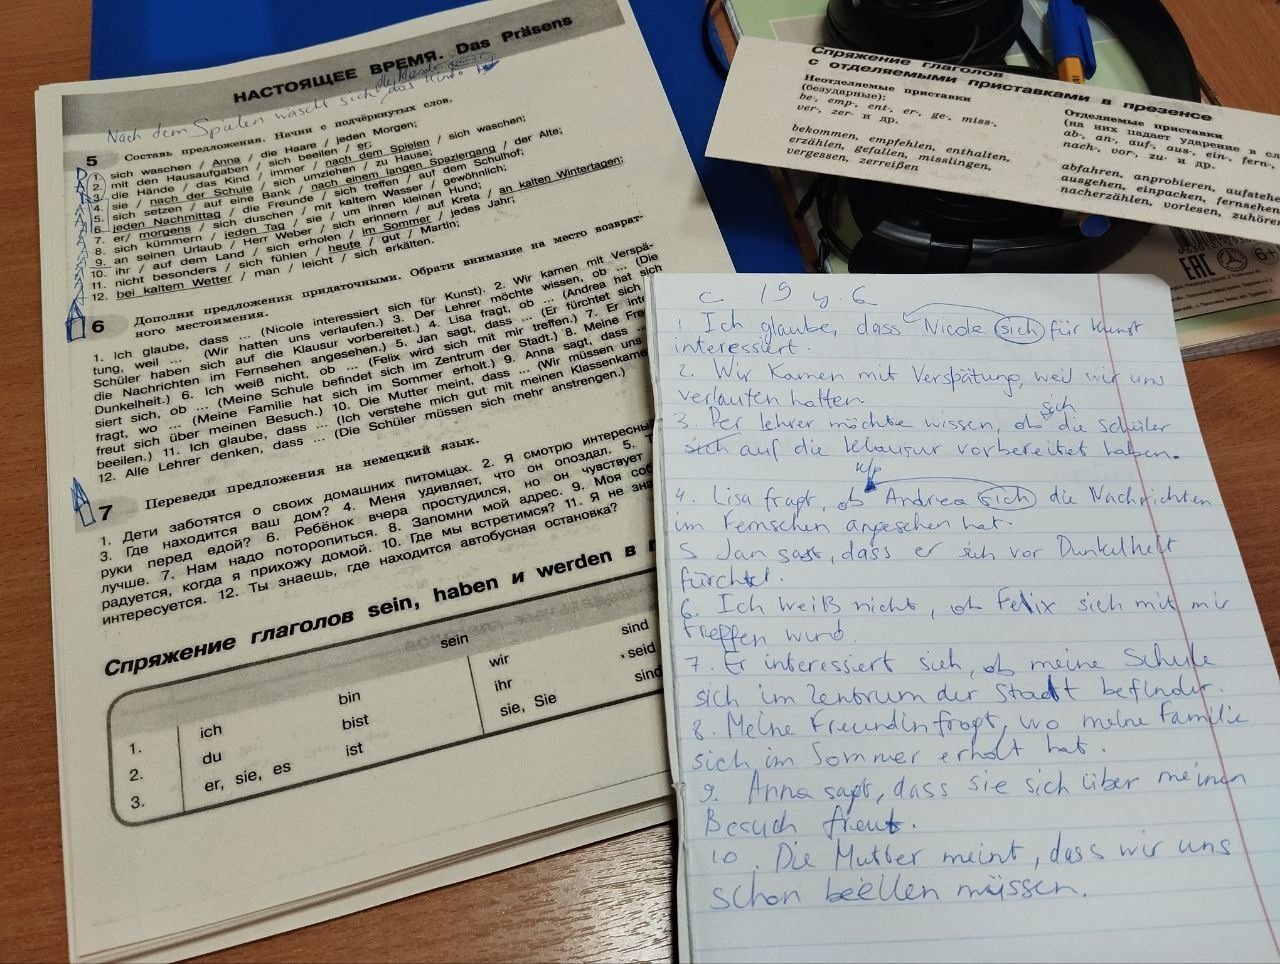 НАСТОЯЩЕЕ ВРЕМЯ. Das Präsens
Nach dem Spielen wäscht sich das Kind
5 Составь предложения. Начни с подчёркнутых слов.
1. sich waschen / Anna / die Haare / jeden Morgen;
2. mit den Hausaufgaben / sich beeilen / er;
3. die Hände / das Kind / immer / nach dem Spielen / sich waschen;
4. sie / nach der Schule / sich umziehen / zu Hause;
5. sich setzen / auf eine Bank / nach einem langen Spaziergang / der Alte;
6. jeden Nachmittag / die Freunde / sich treffen / auf dem Schulhof;
7. er / morgens / sich duschen / mit kaltem Wasser / gewöhnlich;
8. sich kümmern / jeden Tag / sie / um ihren kleinen Hund;
9. an seinen Urlaub / Herr Weber / sich erinnern / auf Kreta / an kalten Wintertagen;
10. ihr / auf dem Land / sich erholen / im Sommer / jedes Jahr;
11. nicht besonders / sich fühlen / heute / gut / Martin;
12. bei kaltem Wetter / man / leicht / sich erkälten.
6 Дополни предложения придаточными. Обрати внимание на место возврат-
ного местоимения.
1. Ich glaube, dass ... (Nicole interessiert sich für Kunst). 2. Wir kamen mit Verspä-
tung, weil ... (Wir hatten uns verlaufen.) 3. Der Lehrer möchte wissen, ob ... (Die
Schüler haben sich auf die Klausur vorbereitet.) 4. Lisa fragt, ob ... (Andrea hat sich
die Nachrichten im Fernsehen angesehen.) 5. Jan sagt, dass ... (Er fürchtet sich
Dunkelheit.) 6. Ich weiß nicht, ob ... (Felix wird sich mit mir treffen.) 7. Er inte
siert sich, ob ... (Meine Schule befindet sich im Zentrum der Stadt.) 8. Meine Fre
fragt, wo ... (Meine Familie hat sich im Sommer erholt.) 9. Anna sagt, dass ...
freut sich über meinen Besuch.) 10. Die Mutter meint, dass ... (Wir müssen uns
beeilen.) 11. Ich glaube, dass ... (Ich verstehe mich gut mit meinen Klassenkame
12. Alle Lehrer denken, dass ... (Die Schüler müssen sich mehr anstrengen.)
7 Переведи предложения на немецкий язык.
1. Дети заботятся о своих домашних питомцах. 2. Я смотрю интересный
3. Где находится ваш дом? 4. Меня удивляет, что он опоздал. 5. Т
руки перед едой? 6. Ребёнок вчера простудился, но он чувствует
лучше. 7. Нам надо поторопиться. 8. Запомни мой адрес. 9. Моя соб
радуется, когда я прихожу домой. 10. Где мы встретимся? 11. Я не зна
интересуется. 12. Ты знаешь, где находится автобусная остановка?
Спряжение глаголов sein, haben и werden в п
sein
1. ich bin wir sind
2. du bist ihr seid
3. er, sie, es ist sie, Sie sind
Спряжение глаголов
с отделяемыми приставками в презенсе
Неотделяемые приставки
(безударные):
be-, emp-, ent-, er-, ge-, miss-,
ver-, zer- и др.
bekommen, empfehlen, enthalten,
erzählen, gefallen, misslingen,
vergessen, zerreißen
Отделяемые приставки
(на них падает ударение в сл
ab-, an-, auf-, aus-, ein-, fern-,
nach-, vor-, zu- и др.
abfahren, anprobieren, aufstehe
ausgehen, einpacken, fernsehen
nacherzählen, vorlesen, zuhören
EAC
6+
с 19 у. 6
1. Ich glaube, dass Nicole sich für Kunst
interessiert.
2. Wir kamen mit Verspätung, weil wir uns
verlaufen hatten
sich
3. Der Lehrer möchte wissen, ob die Schüler
sich auf die Klausur vorbereitet haben.
4. Lisa fragt, ob Andrea sich die Nachrichten
im Fernsehen angesehen hat.
5. Jan sagt, dass er sich vor Dunkelheit
fürchtet.
6. Ich weiß nicht, ob Felix sich mit mir
treffen wird.
7. Er interessiert sich, ob meine Schule
sich im Zentrum der Stadt befindet.
8. Meine Freundin fragt, wo meine Familie
sich im Sommer erholt hat.
9. Anna sagt, dass sie sich über meinen
Besuch freut.
10. Die Mutter meint, dass wir uns
schon beeilen müssen.